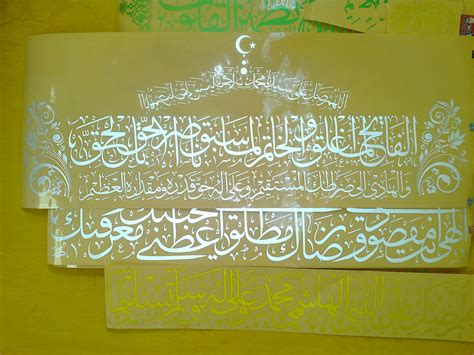 القلوب
اللهم صل على سيدنا محمد
الفاتح لما أغلق والخاتم لما سبق ناصر الحق بالحق
والهادي إلى صراطك المستقيم وعلى آله حق قدره ومقداره العظيم
إلهي أنت مقصودي ورضاك مطلوبي أعطني محبتك ومعرفتك
صل على النبي الهاشمي محمد وعلى آله وسلم تسليما